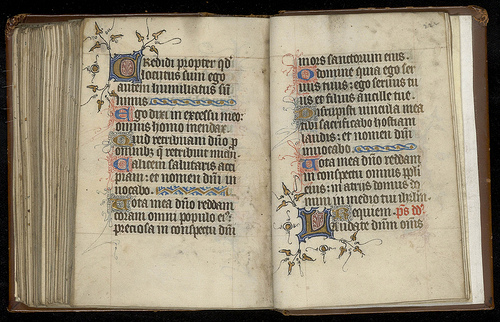 Credidi propter qd
locutus sum ego
autem humiliatus sū
nimis
Ego dixi in excessu meo:
omnis homo mendax.
Quid retribuam dn̄o p
omnibꝫ q̄ retribuit michi.
Calicem salutaris acci
piam: et nomen dn̄i in
uocabo.
Uota mea dn̄o reddam
coram omni populo eiꝰ
preciosa in conspectu dn̄i
mors sanctorum eius.
O domine quia ego ser
uus tuus: ego seruus tu
us et filius ancille tue.
Dirupisti uincula mea
tibi sacrificabo hostiam
laudis: et nomen dn̄i
inuocabo.
Uota mea dn̄o reddam
in conspectu omnis ppli
eius: in atrijs domus do
in medio tui ihrl̄m.
Requiem. ps dd
Laudate dn̄m om̄s